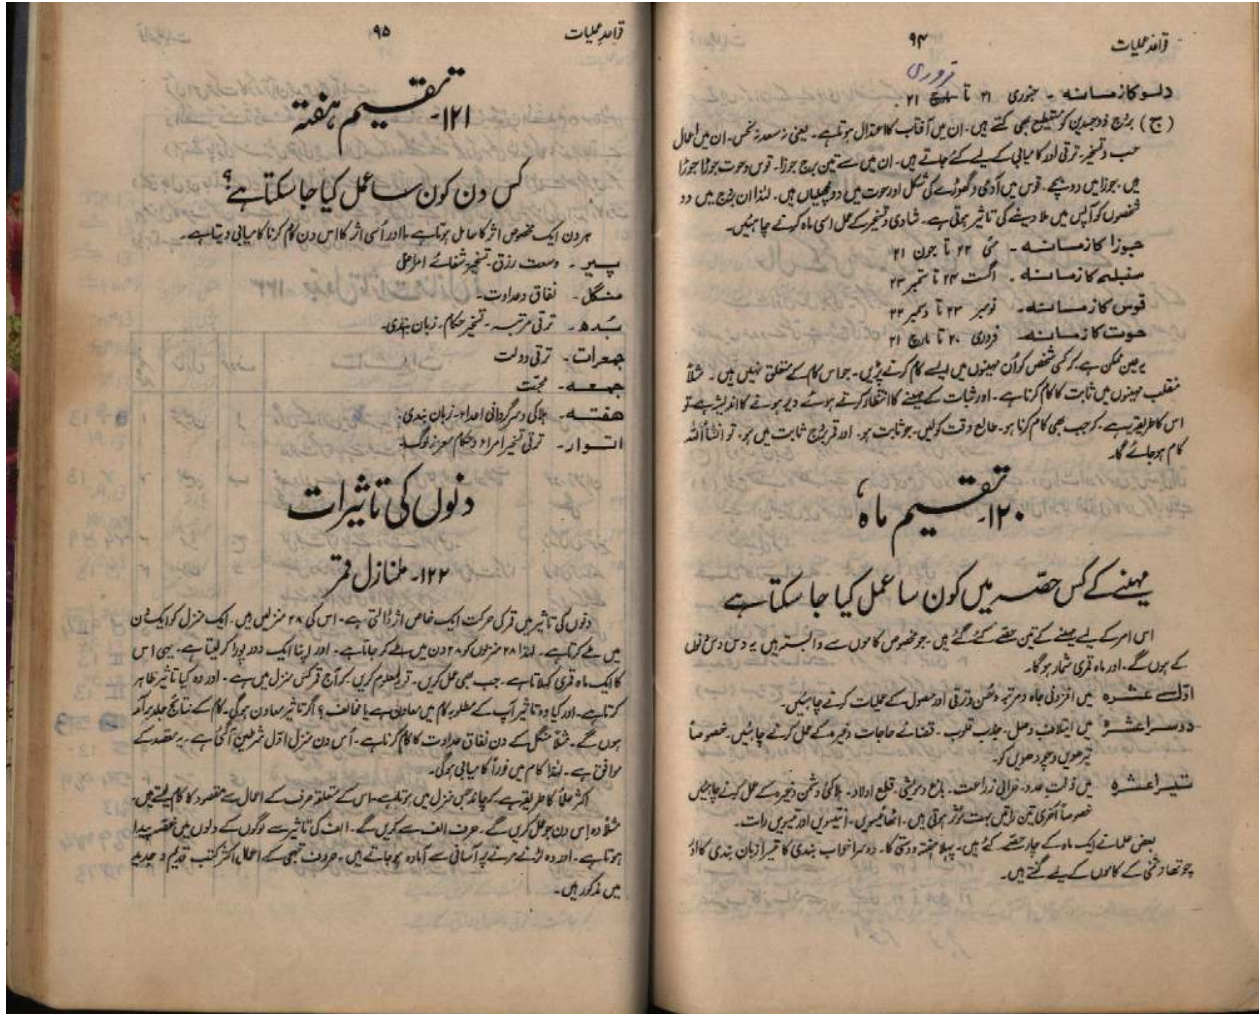 قواعد عملیات
۹۴
فروری
دلو کا زمانہ - جنوری ۲۱ تا مارچ ۲۱
(ج) بروج ذوجسدین کو بھی کہتے ہیں۔ ان میں آفتاب کا اعتدال ہوتا ہے۔ یعنی نہ سعد نہ نحس۔ ان میں اعمال
حب و تسخیر۔ ترقی اور کامیابی کے لیے کئے جاتے ہیں۔ ان میں سے تین برج جوزا۔ قوس و حوت جوڑا جوڑا
ہیں۔ جوزا میں دو بچے۔ قوس میں آدمی و گھوڑے کی شکل اور حوت میں دو مچھلیاں ہیں۔ لہٰذا ان بروج میں دو
شخصوں کو آپس میں ملا دینے کی تاثیر ہوتی ہے۔ شادی و تسخیر کے عمل اسی ماہ کرنے چاہئیں۔
جوزا کا زمانہ - مئی ۲۲ تا جون ۲۱
سنبلہ کا زمانہ - اگست ۲۴ تا ستمبر ۲۳
قوس کا زمانہ - نومبر ۲۳ تا دسمبر ۲۲
حوت کا زمانہ فروری ۲۰ تا مارچ ۲۱
یہ عین ممکن ہے کہ کسی شخص کو اُن مہینوں میں ایسے کام کرنے پڑیں۔ جو اس کام کے متعلق نہیں ہیں۔ مثلاً
منقلب مہینوں میں ثابت کا کام کرنا ہے۔ اور ثبات کے مہینے کا انتظار کرتے ہوئے دیر ہونے کا اندیشہ ہے تو
اس کا طریقہ ہے۔ کہ جب بھی کام کرنا ہو۔ طالع وقت کو لیں۔ جو ثابت ہو۔ اور قمر بروج ثابت میں ہو۔ تو انشاءاللہ
کام ہو جائے گا۔
۱۲۰۔ تقسیم ماہ
مہینے کے کس حصّہ میں کون سا عمل کیا جا سکتا ہے
اس امر کے لیے مہینے کے تین حصّے کئے گئے ہیں۔ جو مخصوص کاموں سے وابستہ ہیں یہ دس دس دنوں
کے ہوں گے۔ اور ماہ قمری شمار ہو گا۔
اوّل عشرہ میں افزونی جاہ و مرتبہ و حُسن و ترقی اور حصول کے عملیات کرنے چاہئیں۔
دوسرا عشرہ میں ایتلاف و وصل۔ جذب قلوب۔ قضائے حاجات وغیرہ کے عمل کرنے چاہئیں۔ خصوصاً
تیرھویں و چودھویں کو۔
تیسرا عشرہ میں ذلت عدو۔ خرابی زراعت۔ باغ و مویشی۔ قطع اولاد۔ ہلاکئی دشمن وغیرہ کے عمل کرنے چاہئیں
خصوصاً آخری تین راتیں بہت مؤثر ہوتی ہیں۔ اٹھائیسویں۔ اُنتیسویں اور تیسویں رات۔
بعض علما نے ایک ماہ کے چار حصّے کئے ہیں۔ پہلا ہفتہ دوستی کا۔ دوسرا خواب بندی کا تیسرا زبان بندی کا اور
چوتھا دشمنی کے کاموں کے لیے گئے ہیں۔
قواعد عملیات
۹۵
۱۲۱۔ تقسیم ہفتہ
کس دن کون سا عمل کیا جا سکتا ہے؟
ہر دن ایک مخصوص اثر کا حامل ہوتا ہے۔ اور اُسی اثر کا اس دن کام کرنا کامیابی دیتا ہے۔
پیر۔ وسعت رزق۔ تسخیر۔ شفائے امراض
منگل۔ نفاق و عداوت۔
بُدھ۔ ترقی مرتبہ۔ تسخیر حکام۔ زبان بندی۔
جمعرات۔ ترقی دولت
جمعہ۔ محبّت
ھفتہ۔ ہلاکی و سرگردانی اعداء۔ زبان بندی۔
اتوار۔ ترقی تسخیر امراء و حکام معزز لوگ۔
دنوں کی تاثیرات
۱۲۲۔ منازل قمر
دنوں کی تاثیر میں قمر کی حرکت ایک خاص اثر ڈالتی ہے۔ اس کی ۲۸ منزلیں ہیں۔ ایک منزل کو ایک دن
میں طے کرتا ہے۔ لہٰذا ۲۸ منزلوں کو ۲۸ دن میں طے کر جاتا ہے۔ اور اپنا ایک دور پورا کر لیتا ہے۔ یہی اس
کا ایک ماہ قمری کہلاتا ہے۔ جب بھی عمل کریں۔ تو معلوم کریں کہ آج قمر کس منزل میں ہے۔ اور وہ کیا تاثیر ظاہر
کرتا ہے۔ اور کیا وہ تاثیر آپ کے مطلوبہ کام میں معاون ہے یا مخالف؟ اگر تاثیر معاون ہو گی۔ کام کے نتائج جلد برآمد
ہوں گے۔ مثلاً منگل کے دن نفاق و عداوت کا کام کرنا ہے۔ اُس دن منزل اوّل شرطین آ گئی ہے۔ یہ مقصد کے
موافق ہے۔ لہٰذا کام میں فوراً کامیابی ہو گی۔
اکثر علما کا طریقہ ہے۔ کہ چاند جس منزل میں ہوتا ہے۔ اس کے متعلقہ حرف کے اعمال سے مقصود کا کام لیتے ہیں۔
مثلاً وہ اس دن جو عمل کریں گے۔ حرف الف سے کریں گے۔ الف کی تاثیر سے لوگوں کے دلوں میں غصّہ پیدا
ہوتا ہے۔ اور وہ لڑنے مرنے پر آسانی سے آمادہ ہو جاتے ہیں۔ حروف تہجی کے اعمال اکثر کتب قدیم و جدید
میں مذکور ہیں۔